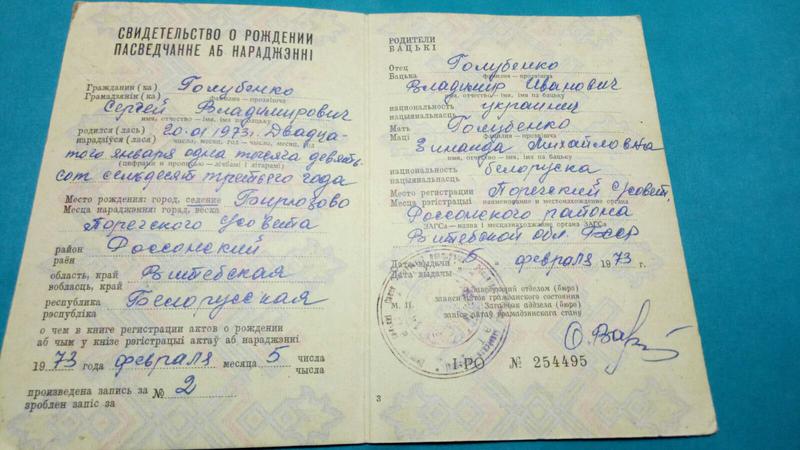 СВИДЕТЕЛЬСТВО О РОЖДЕНИИ
ПАСВЕДЧАННЕ АБ НАРАДЖЭННІ
Гражданин (ка) Голубенко
Грамадзянін (ка) фамилия — прозвішча
Сергей Владимирович
имя, отчество — імя, імя па бацьку
родился (лась) 20.01 1973г. Двадца-
нарадзіўся (лася) число, месяц, год — число, месяц, год
того января одна тысяча девять-
(цифрами и прописью — лічбамі і літарамі)
сот семьдесят третьего года
Место рождения: город, селение
Месца нараджэння: горад, вёска
Поречского с/совета
район Россонский
раён
область, край Витебская
вобласць, край
республика Белорусская
рэспубліка
о чем в книге регистрации актов о рождении
аб чым у кнізе рэгістрацыі актаў аб нараджэнні
1973 года февраля месяца 5 числа
чысла
произведена запись за № 2
зроблен запіс за
РОДИТЕЛИ
БАЦЬКІ
Отец Голубенко
Бацька фамилия — прозвішча
Владимир Иванович
имя, отчество — імя, імя па бацьку
национальность украинец
нацыянальнасць
Мать Голубенко
Маці фамилия — прозвішча
Зинаида Михайловна
имя, отчество — імя, імя па бацьку
национальность белоруска
нацыянальнасць
Место регистрации Поречский с/совет,
Месца рэгістрацыі наименование и местонахождение органа
Россонского района
ЗАГСа — назва і месцазнаходжанне органа ЗАГСа
Витебской обл. БССР
Дата выдачи 5 февраля 1973 г.
Дата выдачы
Заведующий отделом (бюро)
записи актов гражданского состояния
М. П. Загадчык аддзела (бюро)
запісу актаў грамадзянскага стану
I-РО № 254495
3